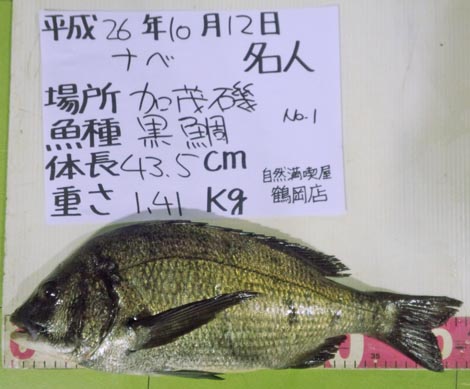 平成26年10月12日
ナベ 名人
場所 加茂磯
魚種 黒鯛
No.1
体長43.5cm
重さ 1.41 Kg
自然満喫屋
鶴岡店
35